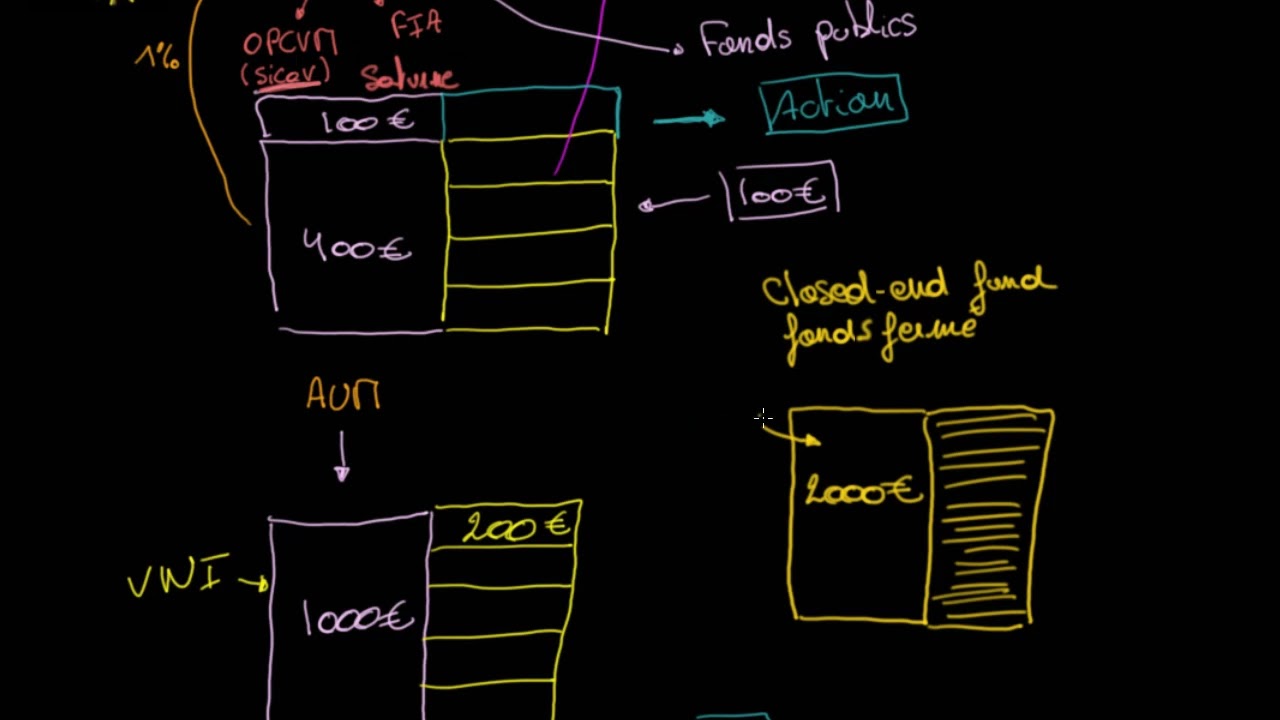 1%
OPCVM
(sicav)
FIA
Fonds publics
Action
100€
100€
400€
Closed-end fund
fonds fermé
AUM
2000€
200€
VNI
1000€